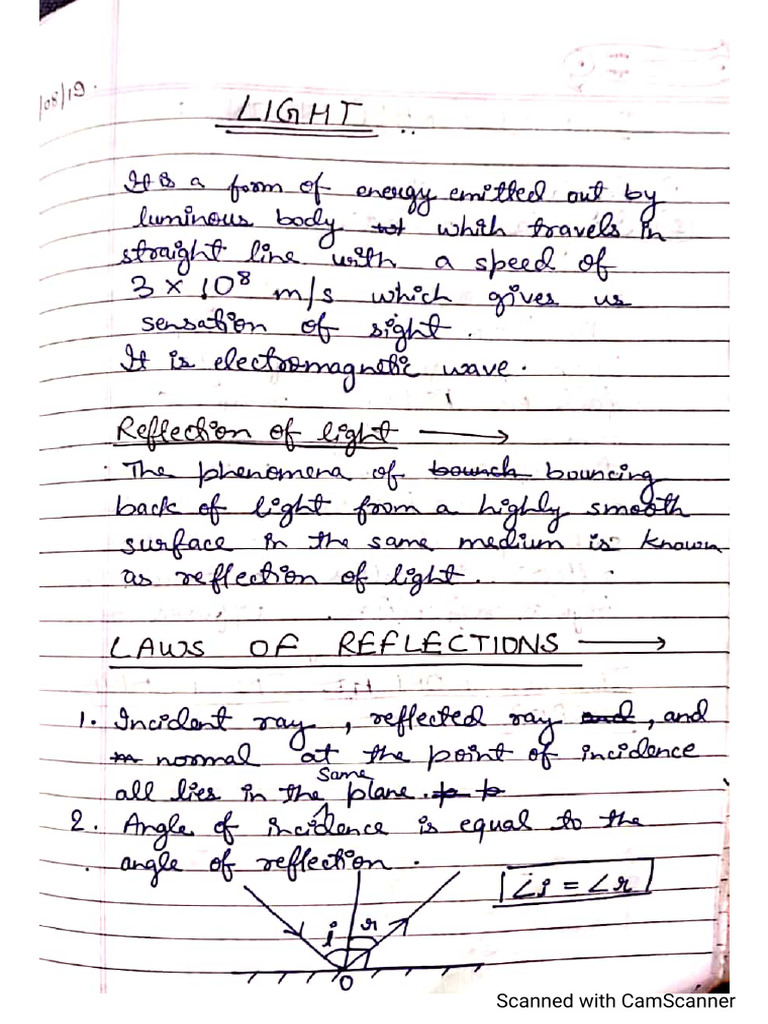 /08/19.
LIGHT
It is a form of energy emitted out by
luminous body which travels in
straight line with a speed of
3 × 10⁸ m/s which gives us
sensation of sight.
It is electromagnetic wave.
Reflection of light →
The phenomena of bouncing
back of light from a highly smooth
surface in the same medium is known
as reflection of light.
LAWS OF REFLECTIONS →
1. Incident ray, reflected ray, and
normal at the point of incidence
all lies in the same plane.
2. Angle of incidence is equal to the
angle of reflection.
∠i = ∠r
i r
O
Scanned with CamScanner